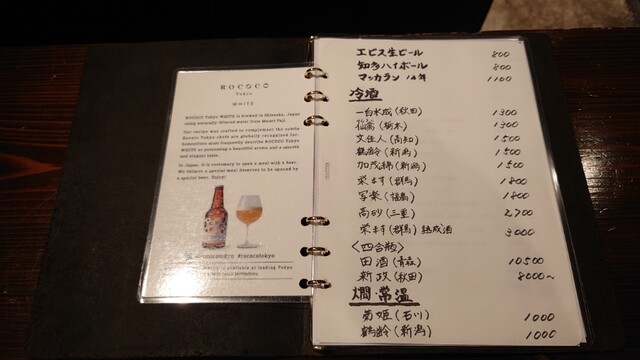 ROCOCO
Tokyo
WHITE
ROCOCO Tokyo WHITE is brewed in Shizuoka, Japan
using naturally-filtered water from Mount Fuji.
Our recipe was crafted to complement the subtle
flavors Tokyo chefs are globally recognized for.
Sommeliers most frequently describe ROCOCO Tokyo
WHITE as possessing a beautiful aroma and a smooth
and elegant taste.
In Japan, it is customary to open a meal with a beer.
We believe a special meal deserves to be opened by
a special beer. Enjoy!
#rococotokyo
is available at leading Tokyo
エビス生ビール 800
知多ハイボール 800
マッカラン 12年 1100
冷酒
一白水成(秋田) 1300
仙禽(栃木) 1300
文佳人(高知) 1500
鶴齢(新潟) 1500
加茂錦(新潟) 1500
栄ます(群馬) 1800
写楽(福島) 1800
高砂(三重) 2700
栄ます(群馬)熟成酒 3000
<四合瓶>
田酒(青森) 10500
新政(秋田) 8000~
燗・常温
菊姫(石川) 1000
鶴齢(新潟) 1000